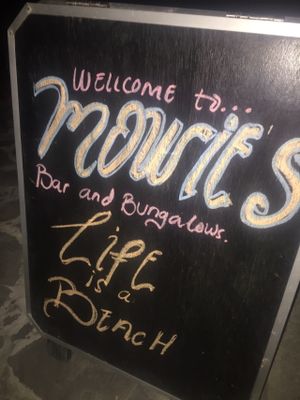 WELLCOME to...
MOWIE'S
Bar and Bungalows.
LIFE
is a
BEACH